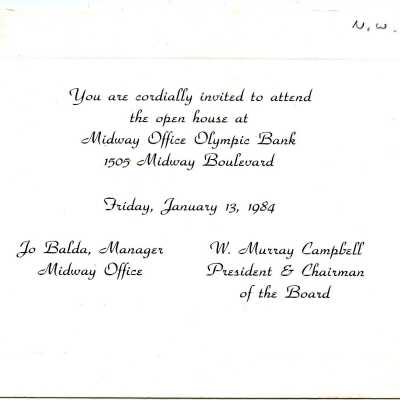 N.W.
You are cordially invited to attend
the open house at
Midway Office Olympic Bank
1505 Midway Boulevard
Friday, January 13, 1984
Jo Balda, Manager
Midway Office
W. Murray Campbell
President & Chairman
of the Board